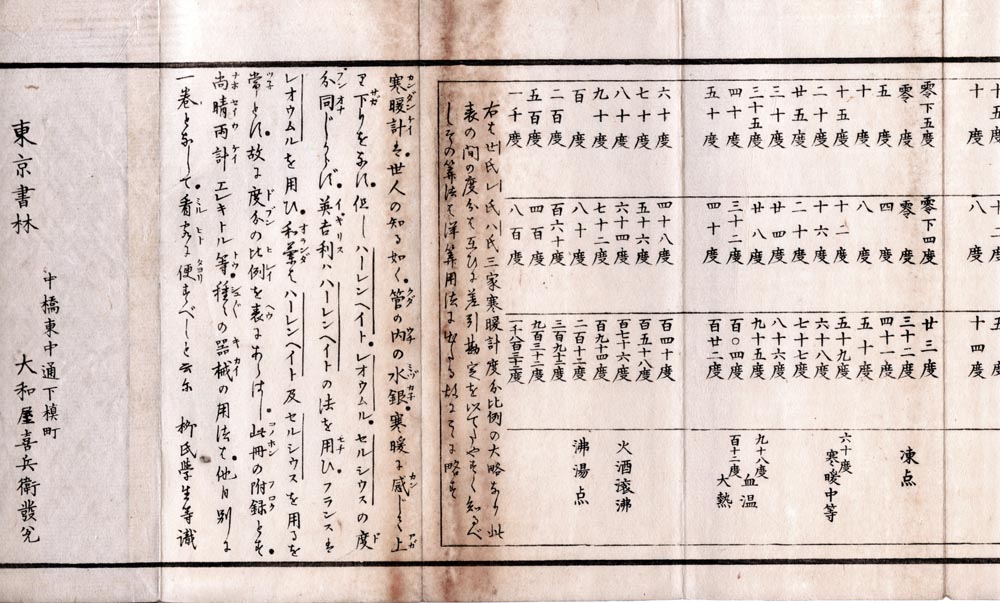 十五度
十度
零下五度
零度
五度
十度
十五度
二十度
廿五度
三十度
三十五度
四十度
五十度
六十度
七十度
八十度
九十度
百度
二百度
五百度
一千度
十二度
八度
零下四度
零度
四度
八度
十二度
十六度
二十度
廿四度
廿八度
三十二度
四十度
四十八度
五十六度
六十四度
七十二度
八十度
百六十度
四百度
八百度
五
十四度
廿三度
三十二度
四十一度
五十度
五十九度
六十八度
七十七度
八十六度
九十五度
百〇四度
百廿二度
百四十度
百五十八度
百七十六度
百九十四度
二百十二度
三百九十二度
九百三十二度
一千八百三十二度
凍点
六十度 寒暖中等
九十八度 血温
百十二度 大熱
火酒滾沸
沸湯点
右は世氏レ氏ハ氏三家寒暖計度分比例の大略なり此
表の間の度分は互ひに差引勘定を以てたやすく知るべ
しその算法は洋算用法に出たる故にここに略す
寒暖計は世人の知る如く管の内の水銀寒暖に感じて上
り下りをなす但しハーレンヘイトレオウムルセルシウスの度
分同じからず英吉利ハハーレンヘイトの法を用ひフランスは
レオウムルを用ひ和蘭はハーレンヘイト及セルシウスを用るを
常とす故に度分の比例を表にあらはし此冊の附録とす
尚晴雨計エレキトル等種々の器械の用法は他日別に
一巻となして看客に便すべしと云尓 柳氏學生等識
東京書林
中橋東中通下槙町
大和屋喜兵衛發兌